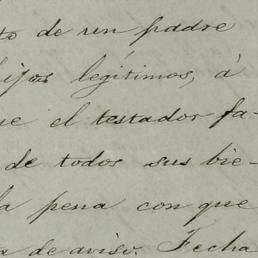 to de un padre
hijos legítimos, á
ue el testador fa-
de todos sus bie-
la pena con que
a de aviso. Fecha